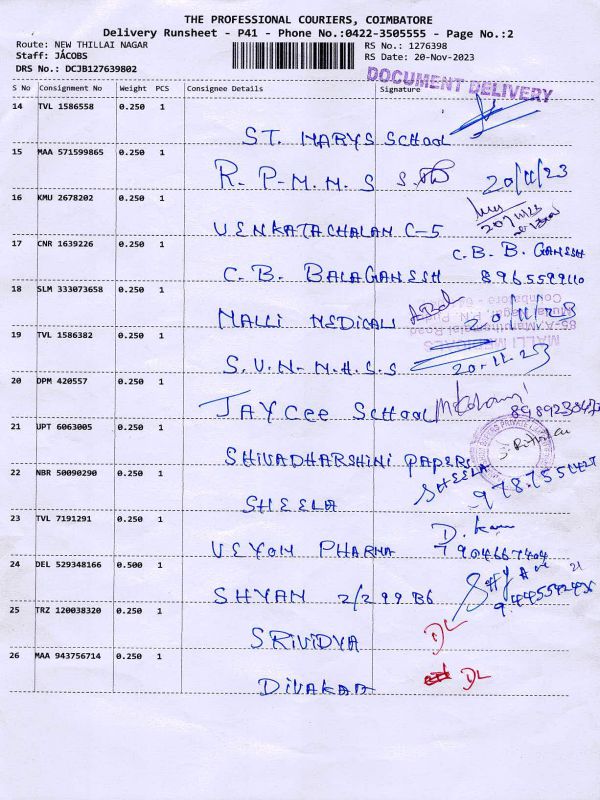 THE PROFESSIONAL COURIERS, COIMBATORE
Delivery Runsheet - P41 - Phone No.:0422-3505555 - Page No.:2
Route: NEW THILLAI NAGAR
RS No.: 1276398
Staff: JACOBS
RS Date: 20-Nov-2023
DRS No.: DCJB127639802
DOCUMENT DELIVERY
S No Consignment No Weight PCS Consignee Details Signature
14 TVL 1586558 0.250 1
ST. MARYS SCHOOL
15 MAA 571599865 0.250 1
R. P. M. M. S 20/11/23
16 KMU 2678202 0.250 1
VENKATACHALAN C-5
17 CNR 1639226 0.250 1
C. B. B. GANESH
C. B. BALAGANESH 8965599110
18 SLM 333073658 0.250 1
MALLI MEDICAL 20/11/23
19 TVL 1586382 0.250 1
S.V.N. M.H.S.S 20-11-23
20 DPM 420557 0.250 1
JAYCEE SCHOOL
21 UPT 6063005 0.250 1
SHIVADHARSHINI PAPERS
22 NBR 50090290 0.250 1
SHEELA
SHEELA
23 TVL 7191291 0.250 1
VEYON PHARMA 7904667404
24 DEL 529348166 0.500 1
SHYAM 2/299 B6
25 TRZ 120038320 0.250 1
SRIVIDYA DL
26 MAA 943756714 0.250 1
DIVAKAR DL